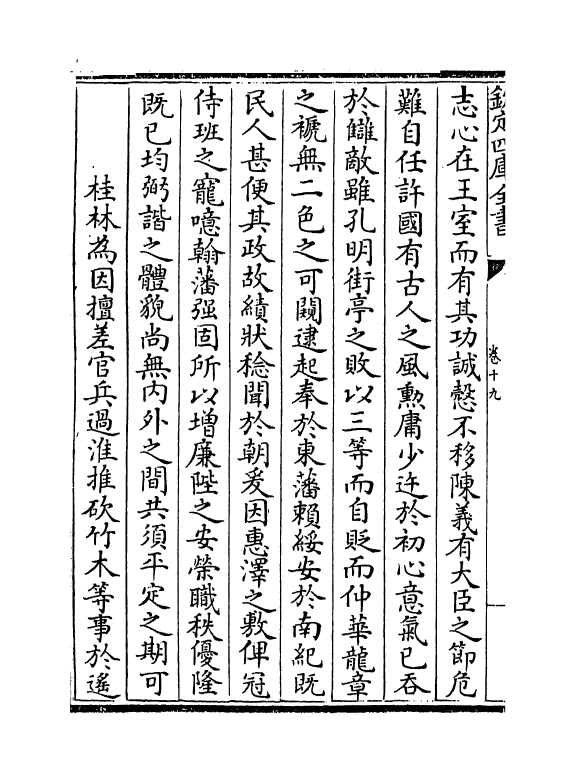 欽定四庫全書
卷十九
志心在王室而有其功誠慤不移陳義有大臣之節危
難自任許國有古人之風勲庸少迕於初心意氣已吞
於讎敵雖孔明街亭之敗以三等而自貶而仲華龍章
之褫無二色之可闚逮起奉於東藩賴綏安於南紀既
民人甚便其政故績狀稔聞於朝爰因惠澤之敷俾冠
侍班之寵噫翰藩强固所以増廉陛之安榮職秩優隆
既已均弼諧之體貌尚無内外之間共須平定之期可
桂林為因擅差官兵過淮推砍竹木等事於遙